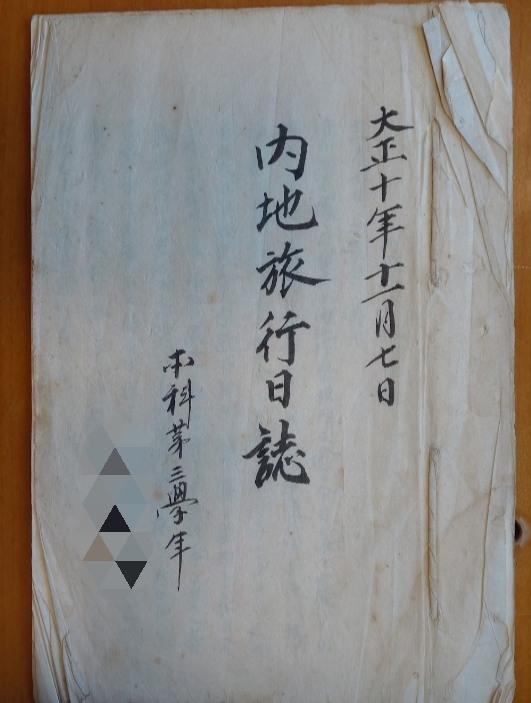 大正十年十一月七日
内地旅行日誌
本科第三學年